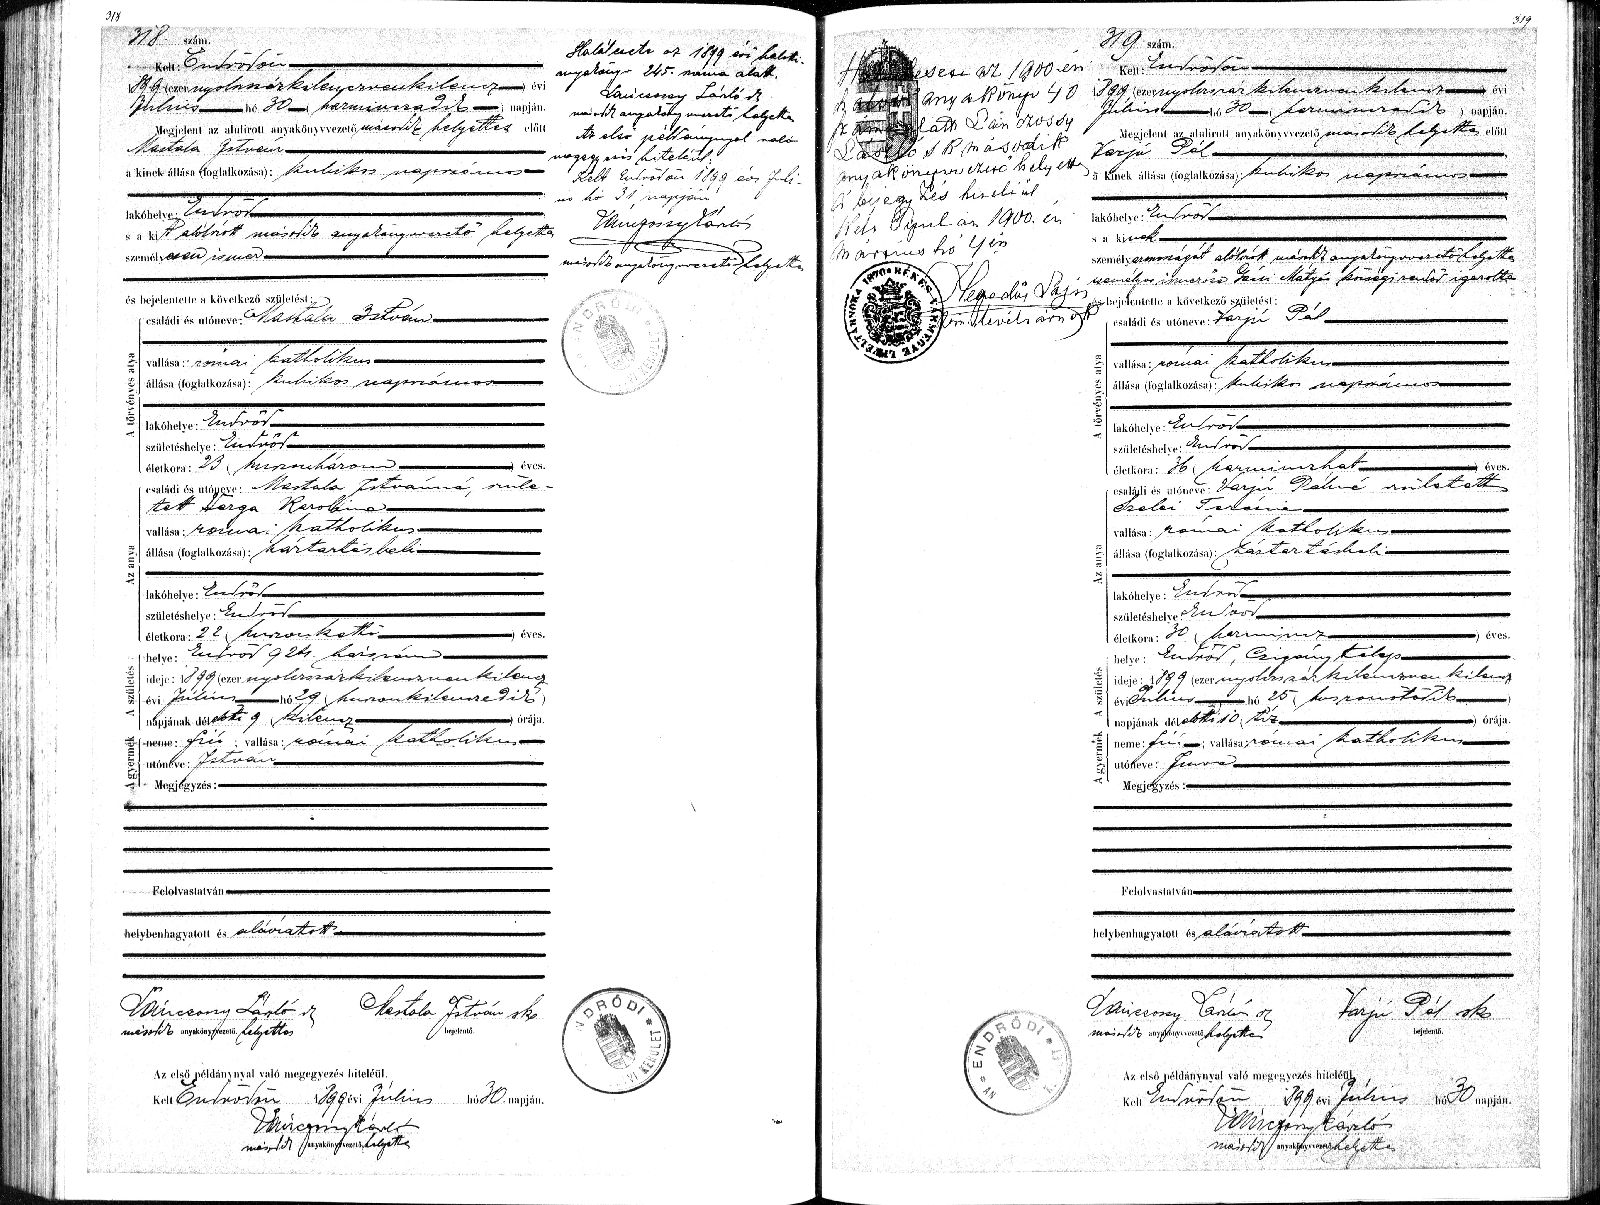 318
318. szám.
Kelt: Endrődön
1899 (ezernyolcszázkilencvenkilencz) évi
Július hó 30 (harminczadik) napján.
Megjelent az alulirott anyakönyvvezető második helyettes előtt
Mastala István
a kinek állása (foglalkozása): kubikos napszámos
lakóhelye: Endrőd
s a kit alólirott második anyakönyvvezető helyettes
személyesen ismer
és bejelentette a következő születést:
A törvényes atya
családi és utóneve: Mastala István
vallása: római katholikus
állása (foglalkozása): kubikos napszámos
lakóhelye: Endrőd
születéshelye: Endrőd
életkora: 23 (huszonhárom) éves.
Az anya
családi és utóneve: Mastala Istvánné, szüle-
tett Varga Karolina
vallása: római katholikus
állása (foglalkozása): háztartásbeli
lakóhelye: Endrőd
születéshelye: Endrőd
életkora: 22 (huszonkettő) éves.
A születés
helye: Endrőd 924. házszám
ideje: 1899 (ezernyolczszázkilenczvenkilencz)
évi Július hó 29 (huszonkilenczedik)
napjának délelőtti 9 (kilencz) órája.
A gyermek
neme: fiú; vallása: római katholikus
utóneve: István
Megjegyzés:
Felolvastatván
helybenhagyatott és aláíratott
Váncsony László sk
második anyakönyvvezető helyettes
Mastala István sk
bejelentő.
Az első példánynyal való megegyezés hiteléül.
Kelt Endrődön 1899 évi Július hó 30 napján.
Váncsony László
második anyakönyvvezető helyettes
Halálesete az 1899 évi halotti
anyakönyv 245. száma alatt.
Váncsony László sk
második anyakönyvvezető helyettes
Az első példánynyal való
megegyezés hiteléül.
Kelt Endrődön 1899 évi Júli-
us hó 31 napján
Váncsony László
második anyakönyvvezető helyettes
ENDRŐDI
ENDRŐDI
KERÜLET
319
az 1900. évi
anyakönyv 40
László sk második
anyakönyvvezető helyettes
bejegyzés hiteléül
Kelt Gyulán 1900. évi
márczius hó 4 én
Hegedűs Lajos
BÉKÉS VÁRMEGYE LEVÉLTÁRNOKA 1876
319. szám.
Kelt: Endrődön
1899 (ezernyolczszázkilenczvenkilencz) évi
Július hó 30 (harminczadik) napján.
Megjelent az alulirott anyakönyvvezető második helyettes előtt
Varjú Pál
a kinek állása (foglalkozása): kubikos napszámos
lakóhelye: Endrőd
s a kinek
személyazonosságát alólirott második anyakönyvvezető helyettes
személyes ismerőse Mátyás községi rendőr igazolta
és bejelentette a következő születést:
A törvényes atya
családi és utóneve: Varjú Pál
vallása: római katholikus
állása (foglalkozása): kubikos napszámos
lakóhelye: Endrőd
születéshelye: Endrőd
életkora: 36 (harminczhat) éves.
Az anya
családi és utóneve: Varjú Pálné született
Szalai Terézia
vallása: római katholikus
állása (foglalkozása): háztartásbeli
lakóhelye: Endrőd
születéshelye: Endrőd
életkora: 30 (harmincz) éves.
A születés
helye: Endrőd, Czigánytelep
ideje: 1899 (ezernyolczszázkilenczvenkilencz)
évi Július hó 25 (huszonötödik)
napjának délelőtti 10 (tíz) órája.
A gyermek
neme: fiú; vallása: római katholikus
utóneve: Imre
Megjegyzés:
Felolvastatván
helybenhagyatott és aláíratott
Váncsony László sk
második anyakönyvvezető helyettes
Varjú Pál sk
bejelentő.
Az első példánynyal való megegyezés hiteléül.
Kelt Endrődön 1899 évi Július hó 30 napján.
Váncsony László
második anyakönyvvezető helyettes
ENDRŐDI